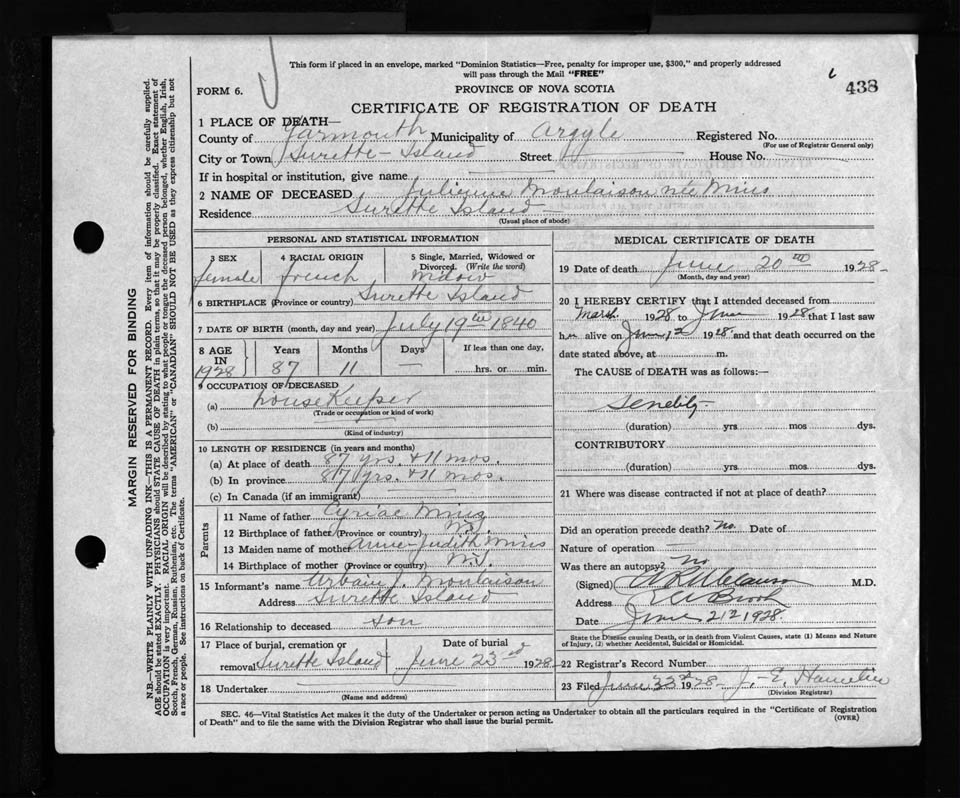 This form if placed in an envelope, marked "Dominion Statistics—Free, penalty for improper use, $300," and properly addressed
will pass through the Mail "FREE"
FORM 6.
PROVINCE OF NOVA SCOTIA
438
CERTIFICATE OF REGISTRATION OF DEATH
1 PLACE OF DEATH—
County of Yarmouth Municipality of Argyle Registered No.
(For use of Registrar General only)
City or Town Surette-Island Street House No.
If in hospital or institution, give name
2 NAME OF DECEASED Julienne Moulaison née Mius
Residence Surette Island
(Usual place of abode)
PERSONAL AND STATISTICAL INFORMATION
3 SEX 4 RACIAL ORIGIN 5 Single, Married, Widowed or Divorced. (Write the word)
female french Widow
6 BIRTHPLACE (Province or country) Surette Island
7 DATE OF BIRTH (month, day and year) July 19th 1840
8 AGE IN 1928 Years Months Days If less than one day,
87 11 — hrs. or min.
9 OCCUPATION OF DECEASED
(a) house Keeper
(Trade or occupation or kind of work)
(b)
(Kind of industry)
10 LENGTH OF RESIDENCE (in years and months)
(a) At place of death 87 yrs. + 11 mos.
(b) In province 87 yrs. + 11 mos.
(c) In Canada (if an immigrant)
Parents
11 Name of father Cyriac Mius
12 Birthplace of father (Province or country) N.S.
13 Maiden name of mother Anne-Judith Mius
14 Birthplace of mother (Province or country) N.S.
15 Informant's name Urbain J. Moulaison
Address Surette Island
16 Relationship to deceased son
17 Place of burial, cremation or Date of burial
removal Surette Island June 23rd 1928
18 Undertaker
(Name and address)
MEDICAL CERTIFICATE OF DEATH
19 Date of death June 20th 1928
(Month, day and year)
20 I HEREBY CERTIFY that I attended deceased from
March 1928 to June 1928 that I last saw
h alive on June 12 1928 and that death occurred on
date stated above, at m.
The CAUSE of DEATH was as follows:—
Senility
(duration) yrs mos dys.
CONTRIBUTORY
(duration) yrs. mos. dys.
21 Where was disease contracted if not at place of death?
Did an operation precede death? no. Date of
Nature of operation
Was there an autopsy? No
(Signed) M.D.
Address Brook
Date June 21 1928
State the Disease causing Death, or in death from Violent Causes, state (1) Means and Nature
of Injury, (2) whether Accidental, Suicidal or Homicidal.
22 Registrar's Record Number
23 Filed June 23rd 1928 J.-E.
(Division Registrar)
SEC. 46—Vital Statistics Act makes it the duty of the Undertaker or person acting as Undertaker to obtain all the particulars required in the "Certificate of Registration
of Death" and to file the same with the Division Registrar who shall issue the burial permit.
(OVER)
MARGIN RESERVED FOR BINDING
N.B.—WRITE PLAINLY WITH UNFADING INK—THIS IS A PERMANENT RECORD. Every item of information should be carefully supplied.
AGE should be stated EXACTLY. PHYSICIANS should STATE CAUSE OF DEATH in plain terms, so that it may be properly classified. Exact statement of
OCCUPATION is very important. RACIAL ORIGIN will be described by stating to what people or tongue the deceased person belonged, whether English, Irish,
Scotch, French, German, Russian, Ruthenian, etc. The terms "AMERICAN" or "CANADIAN" SHOULD NOT BE USED as they express citizenship but not
a race or people. See instructions on back of Certificate.